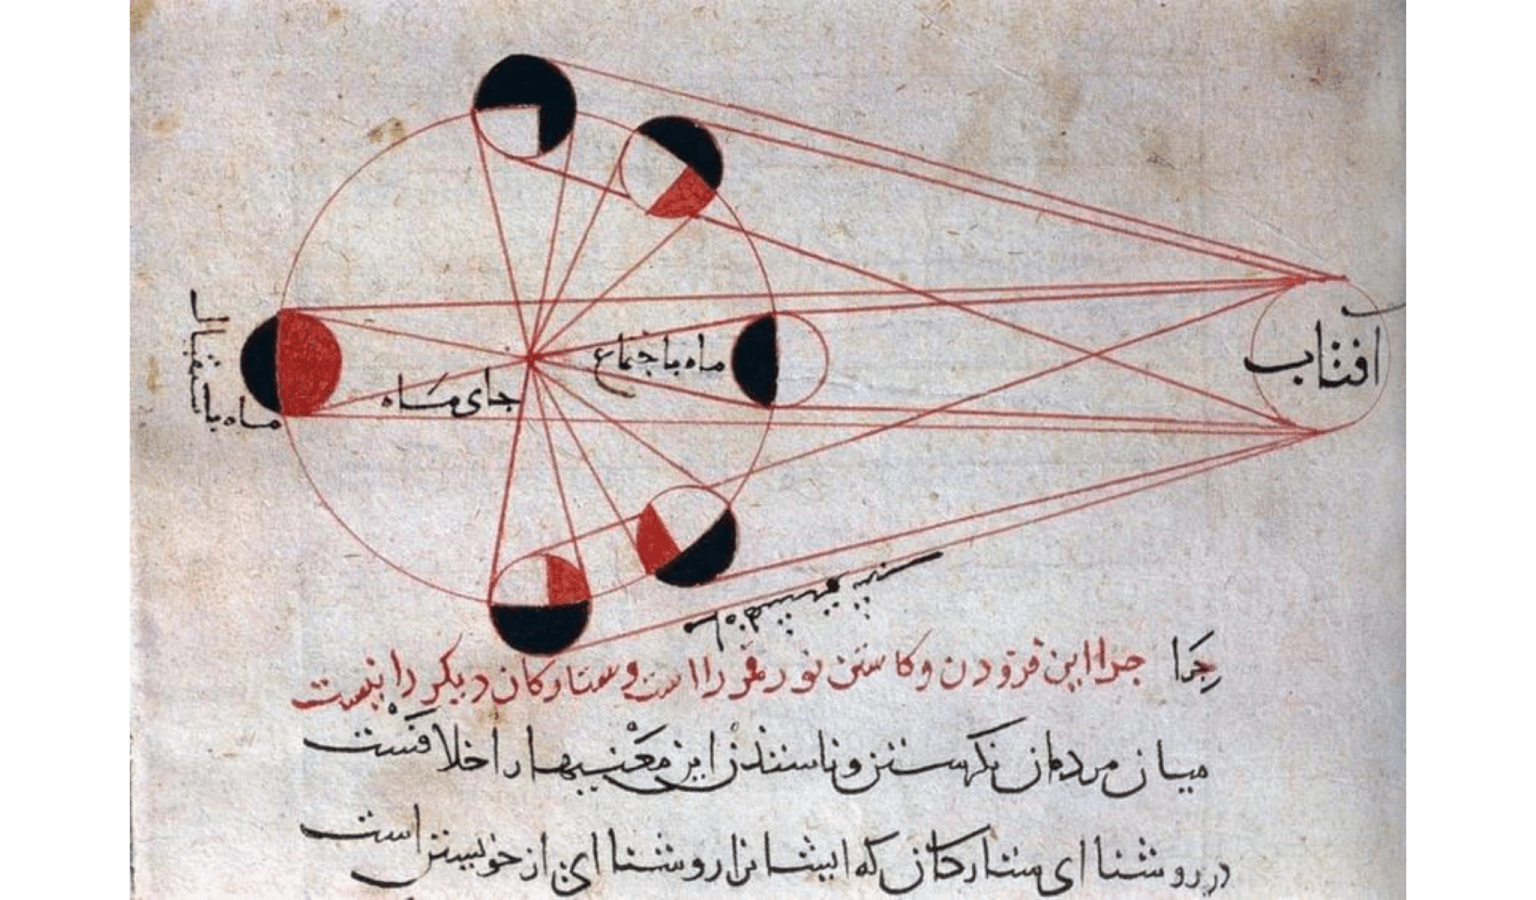 افتاب
ماه باجتماع
جای مَاه
ماه باستقبال
چرا چرا این فزودن و کاستن نور قمر را است و ستارکان دیکر را نیست
میان مردمان نکرستن و این مَعْنیها را خلافَسْت
در روشنا ای ستارکان که ایشانرا روشنا ای از خویشتن است